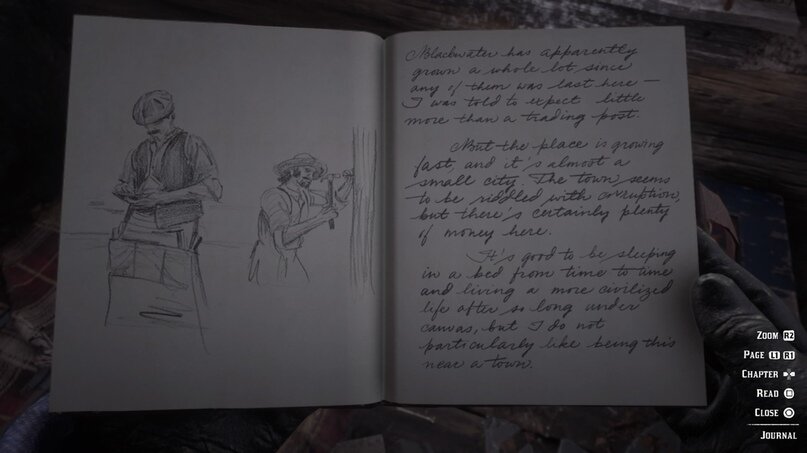 Blackwater has apparently
grown a whole lot since
any of them was last here —
I was told to expect little
more than a trading post.
But the place is growing
fast, and it's almost a
small city. The town seems
to be riddled with corruption,
but there's certainly plenty
of money here.
It's good to be sleeping
in a bed from time to time
and living a more civilized
life after so long under
canvas, but I do not
particularly like being this
near a town.
ZOOM R2
PAGE L1 R1
CHAPTER
READ
CLOSE
JOURNAL